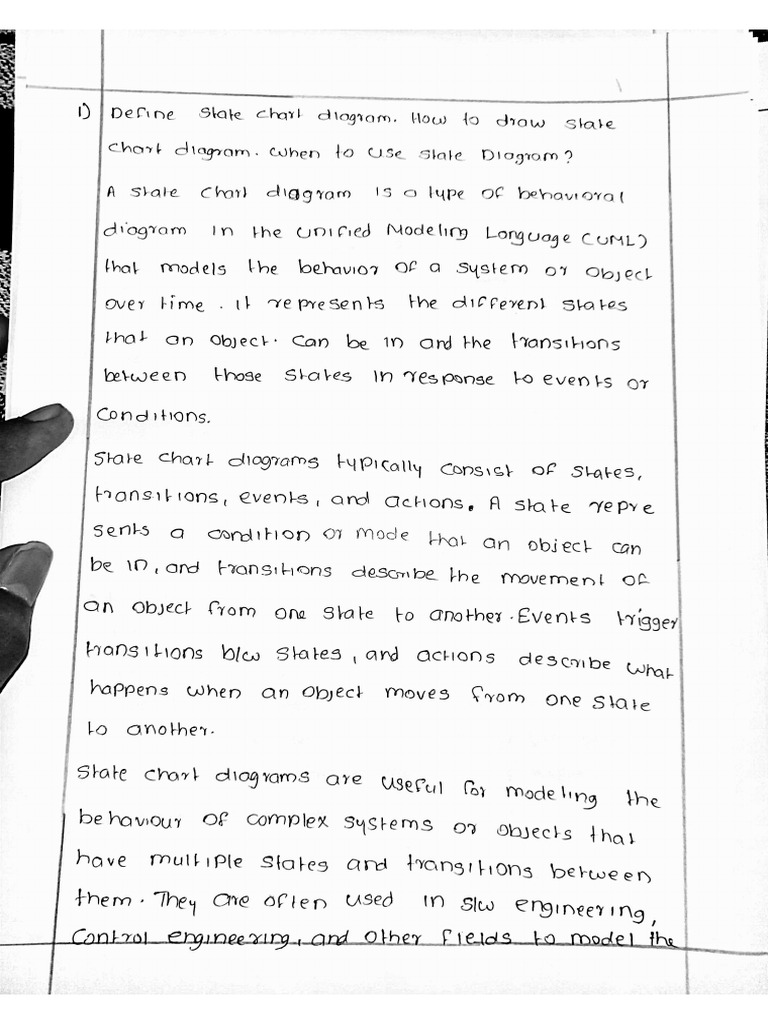 1) Define state chart diagram. How to draw state
chart diagram. When to use state Diagram?
A state chart diagram is a type of behavioral
diagram in the unified Modeling Language (UML)
that models the behavior of a system or object
over time. it represents the different states
that an object. can be in and the transitions
between those states in response to events or
conditions.
State chart diagrams typically consist of states,
transitions, events, and actions. A state repre
sents a condition or mode that an object can
be in, and transitions describe the movement of
an object from one state to another. Events trigger
transitions b/w states, and actions describe what
happens when an object moves from one state
to another.
State chart diagrams are useful for modeling the
behaviour of complex systems or objects that
have multiple states and transitions between
them. They are often used in s/w engineering,
Control engineering, and other fields to model the